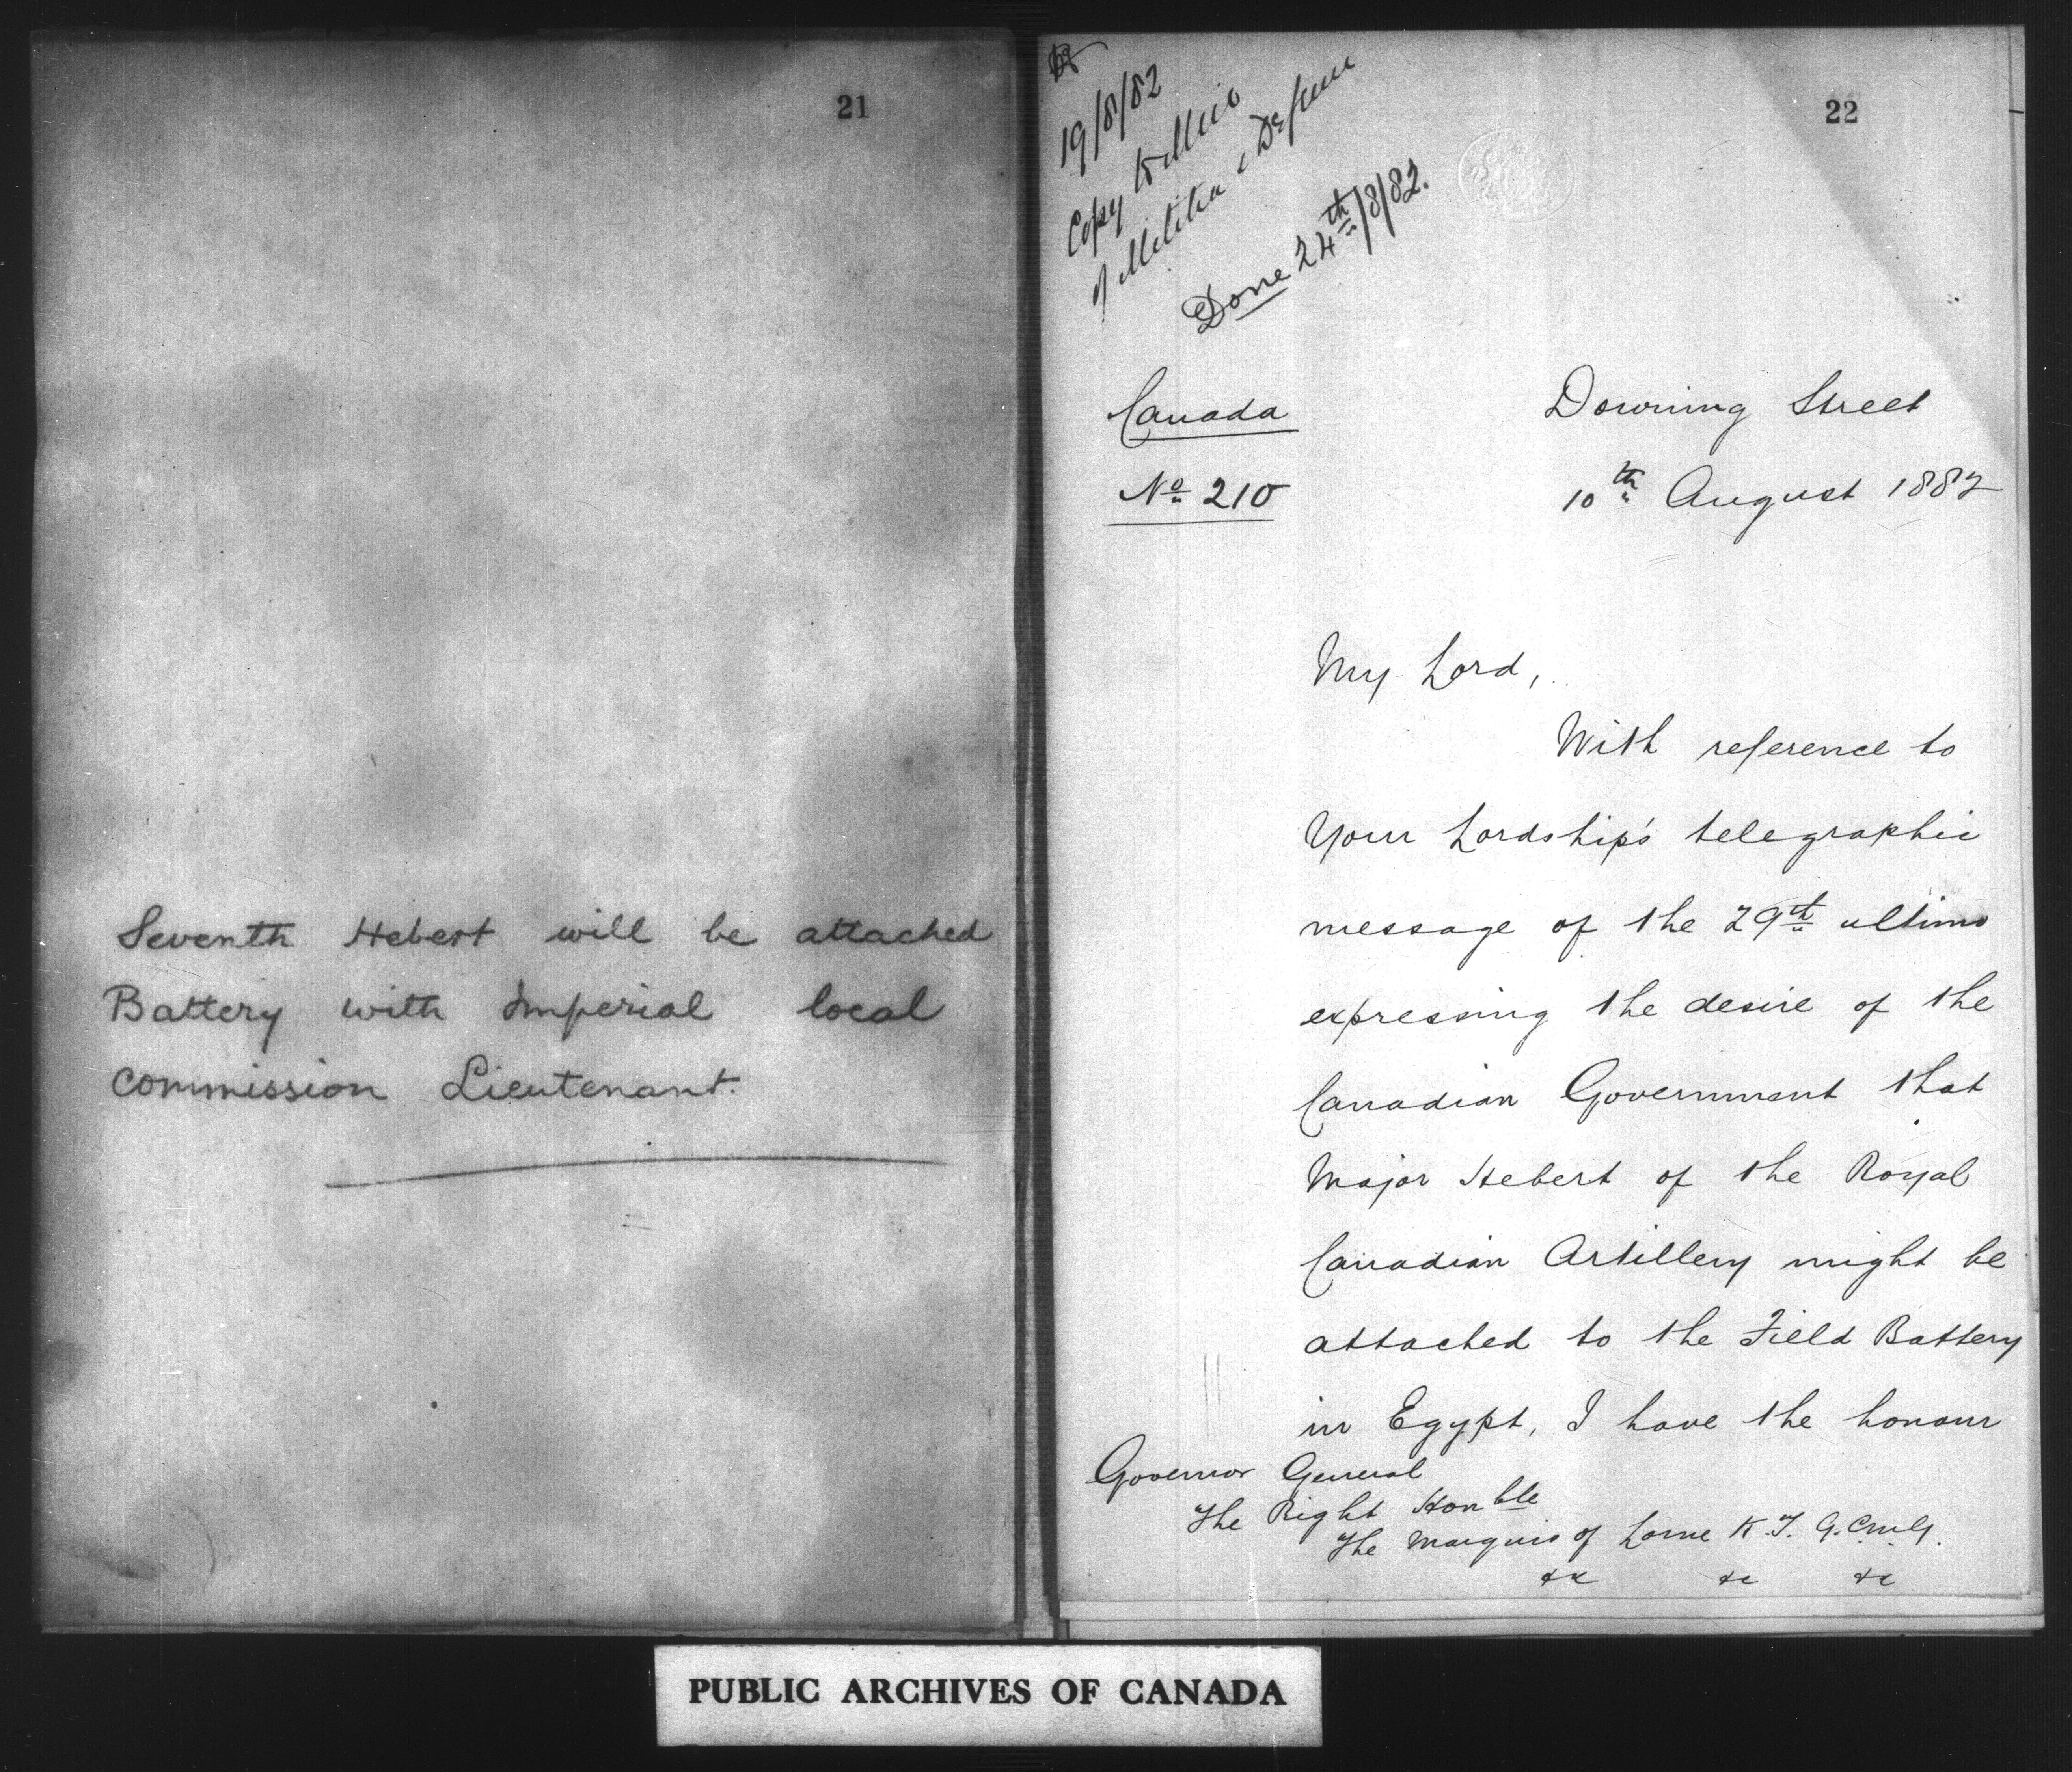 21
Seventh Hebert will be attached
Battery with Imperial local
commission Lieutenant.
22
19/8/82
Copy to Min
of Militia & Defence
Done 24th/8/82.
Canada
No 210
Downing Street
10th August 1882
My Lord,
With reference to
Your Lordship's telegraphic
message of the 29th ultimo
expressing the desire of the
Canadian Government that
Major Hebert of the Royal
Canadian Artillery might be
attached to the Field Battery
in Egypt, I have the honour
Governor General
The Right Honble
The Marquis of Lorne K.T. G.C.M.G.
&c &c &c
PUBLIC ARCHIVES OF CANADA